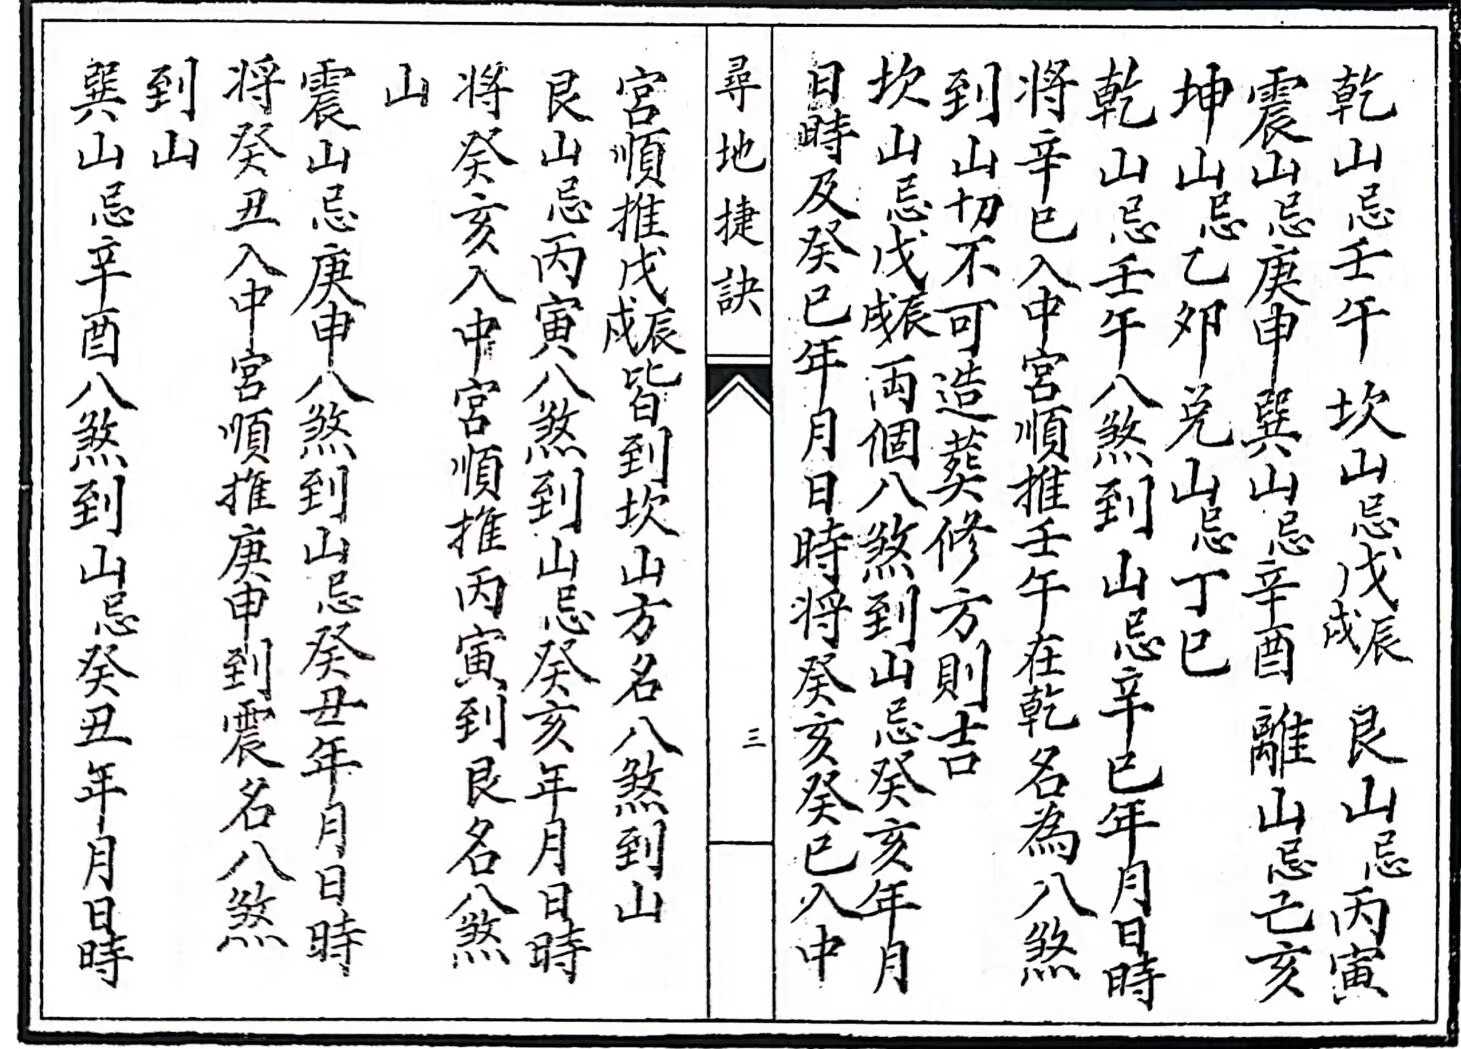 乾山忌壬午　坎山忌戊辰戌　艮山忌丙寅
震山忌庚申　巽山忌辛酉　離山忌己亥
坤山忌乙卯　兌山忌丁巳
乾山忌壬午八煞到山忌辛巳年月日時
將辛巳入中宮順推壬午在乾名為八煞
到山切不可造葬修方則吉
坎山忌戊辰戌両個八煞到山忌癸亥年月
日時及癸巳年月日時將癸亥癸巳入中
尋地捷訣
三
宮順推戊辰戌皆到坎山方名八煞到山
艮山忌丙寅八煞到山忌癸亥年月日時
將癸亥入中宮順推丙寅到艮名八煞
山
震山忌庚申八煞到山忌癸丑年月日時
將癸丑入中宮順推庚申到震名八煞
到山
巽山忌辛酉八煞到山忌癸丑年月日時